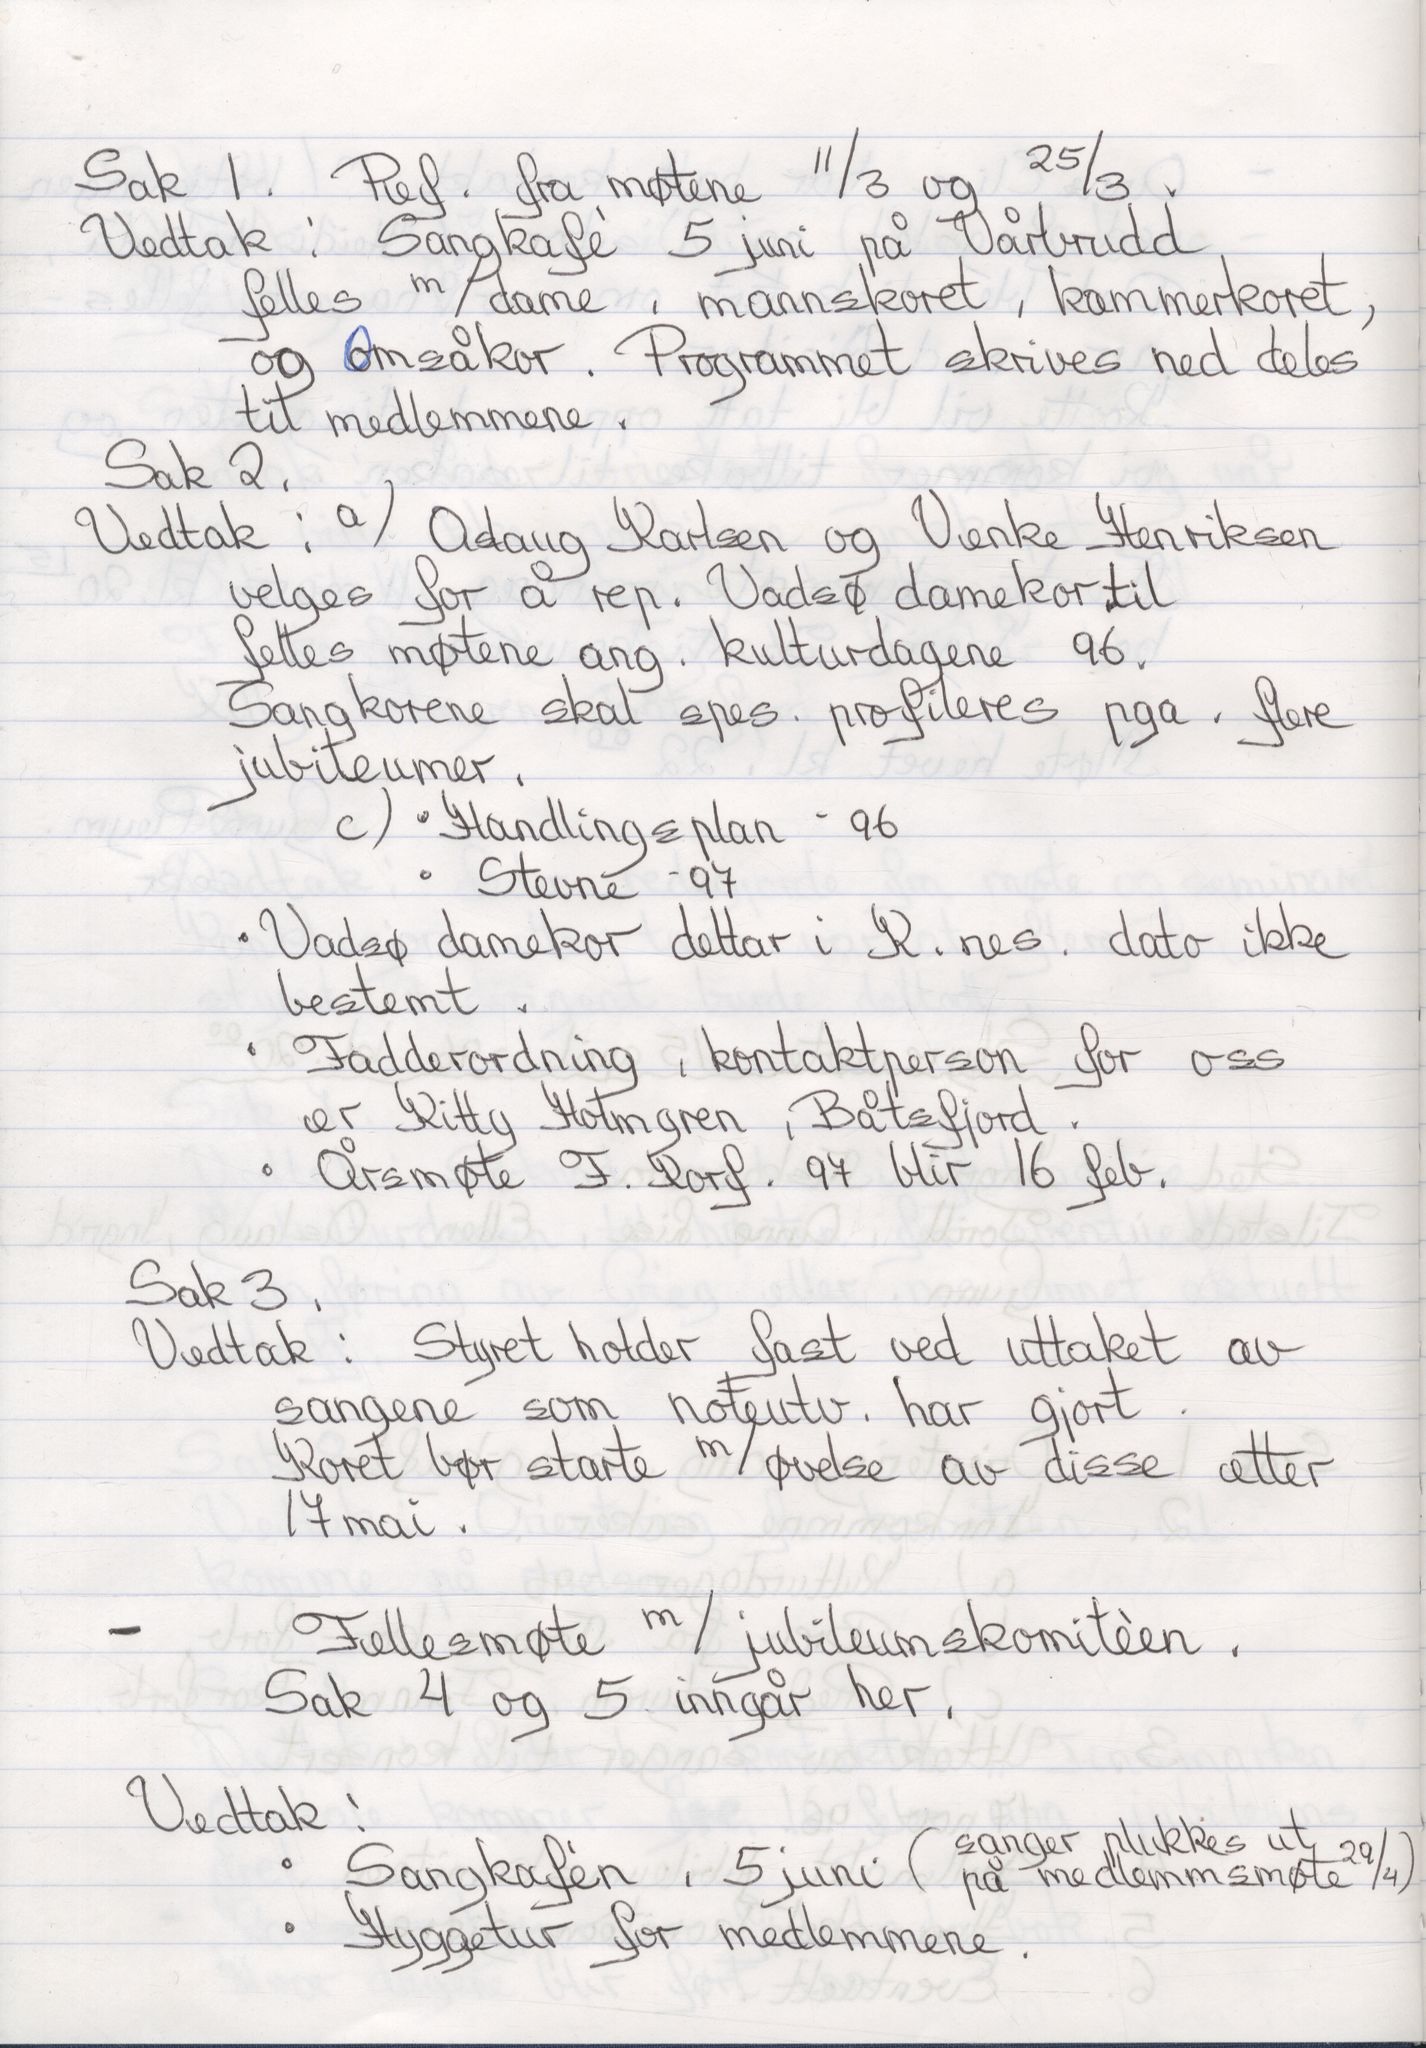 Sak 1. Ref. fra møtene 11/3 og 25/3.
Vedtak: Sangkafé 5 juni på Vårbrudd
felles m/dame, mannskoret, kammerkoret,
og Omsåkor. Programmet skrives ned deles
til medlemmene.
Sak 2.
Vedtak: a) Oslaug Karlsen og Venke Henriksen
velges for å rep. Vadsø damekor til
felles møtene ang. kulturdagene 96.
Sangkorene skal spes. profileres pga. flere
jubileumer.
c) • Handlingsplan - 96
• Stevne -97
• Vadsø damekor deltar i K.nes. dato ikke
bestemt.
• Fadderordning, kontaktperson for oss
er Kitty Holmgren, Båtsfjord.
• Årsmøte F. Korf. 97 blir 16 feb.
Sak 3.
Vedtak: Styret holder fast ved uttaket av
sangene som noteutv. har gjort.
Koret bør starte m/øvelse av disse etter
17 mai.
- Fellesmøte m/jubileumskomitèen.
Sak 4 og 5 inngår her.
Vedtak:
• Sangkafén, 5 juni (sanger plukkes ut
på medlemmsmøte 29/4)
• Hyggetur for medlemmene.